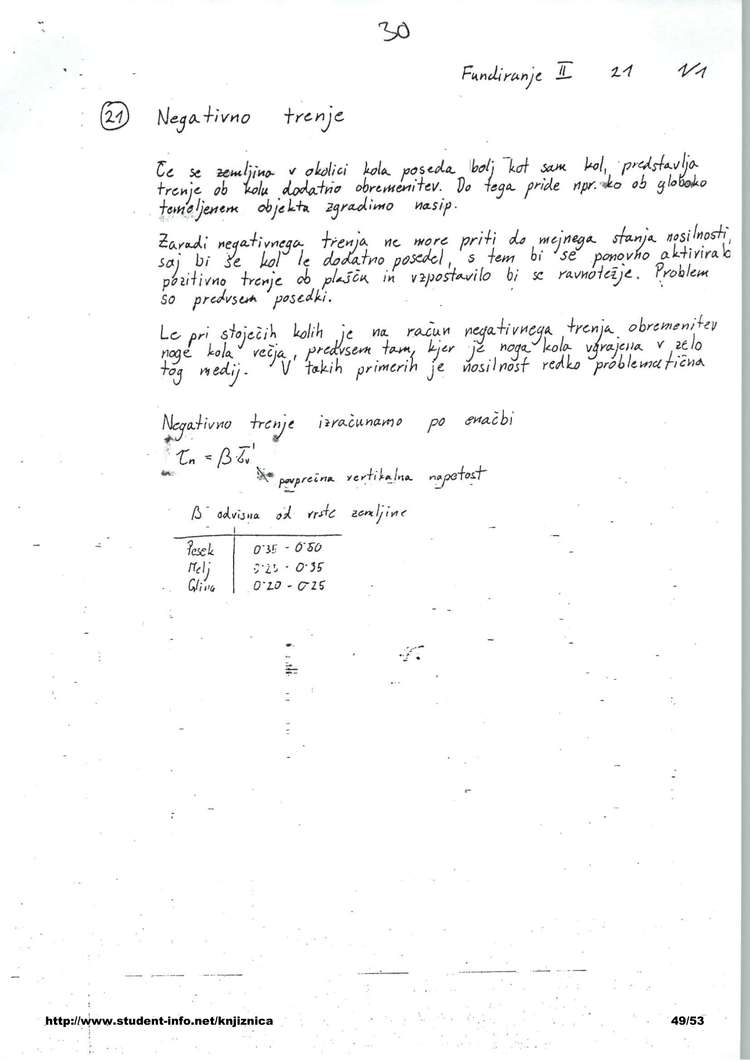 30
Fundiranje II 21 1/1
21 Negativno trenje
Če se zemljina v okolici kola poseda bolj kot sam kol, predstavlja
trenje ob kolu dodatno obremenitev. Do tega pride npr. ko ob globoko
temeljenem objektu zgradimo nasip.
Zaradi negativnega trenja ne more priti do mejnega stanja nosilnosti,
saj bi se kol le dodatno posedel, s tem bi se ponovno aktiviralo
pozitivno trenje ob plašču in vzpostavilo bi se ravnotežje. Problem
so predvsem posedki.
Le pri stoječih kolih je na račun negativnega trenja obremenitev
noge kola večja, predvsem tam, kjer je noga kola vgrajena v zelo
tog medij. V takih primerih je nosilnost redko problematična
Negativno trenje izračunamo po enačbi
τn = β σv'
povprečna vertikalna napetost
β odvisna od vrste zemljine
Pesek 0'35 - 0'50
Melj 0'25 - 0'35
Glina 0'20 - 0'25
http://www.student-info.net/knjiznica 49/53